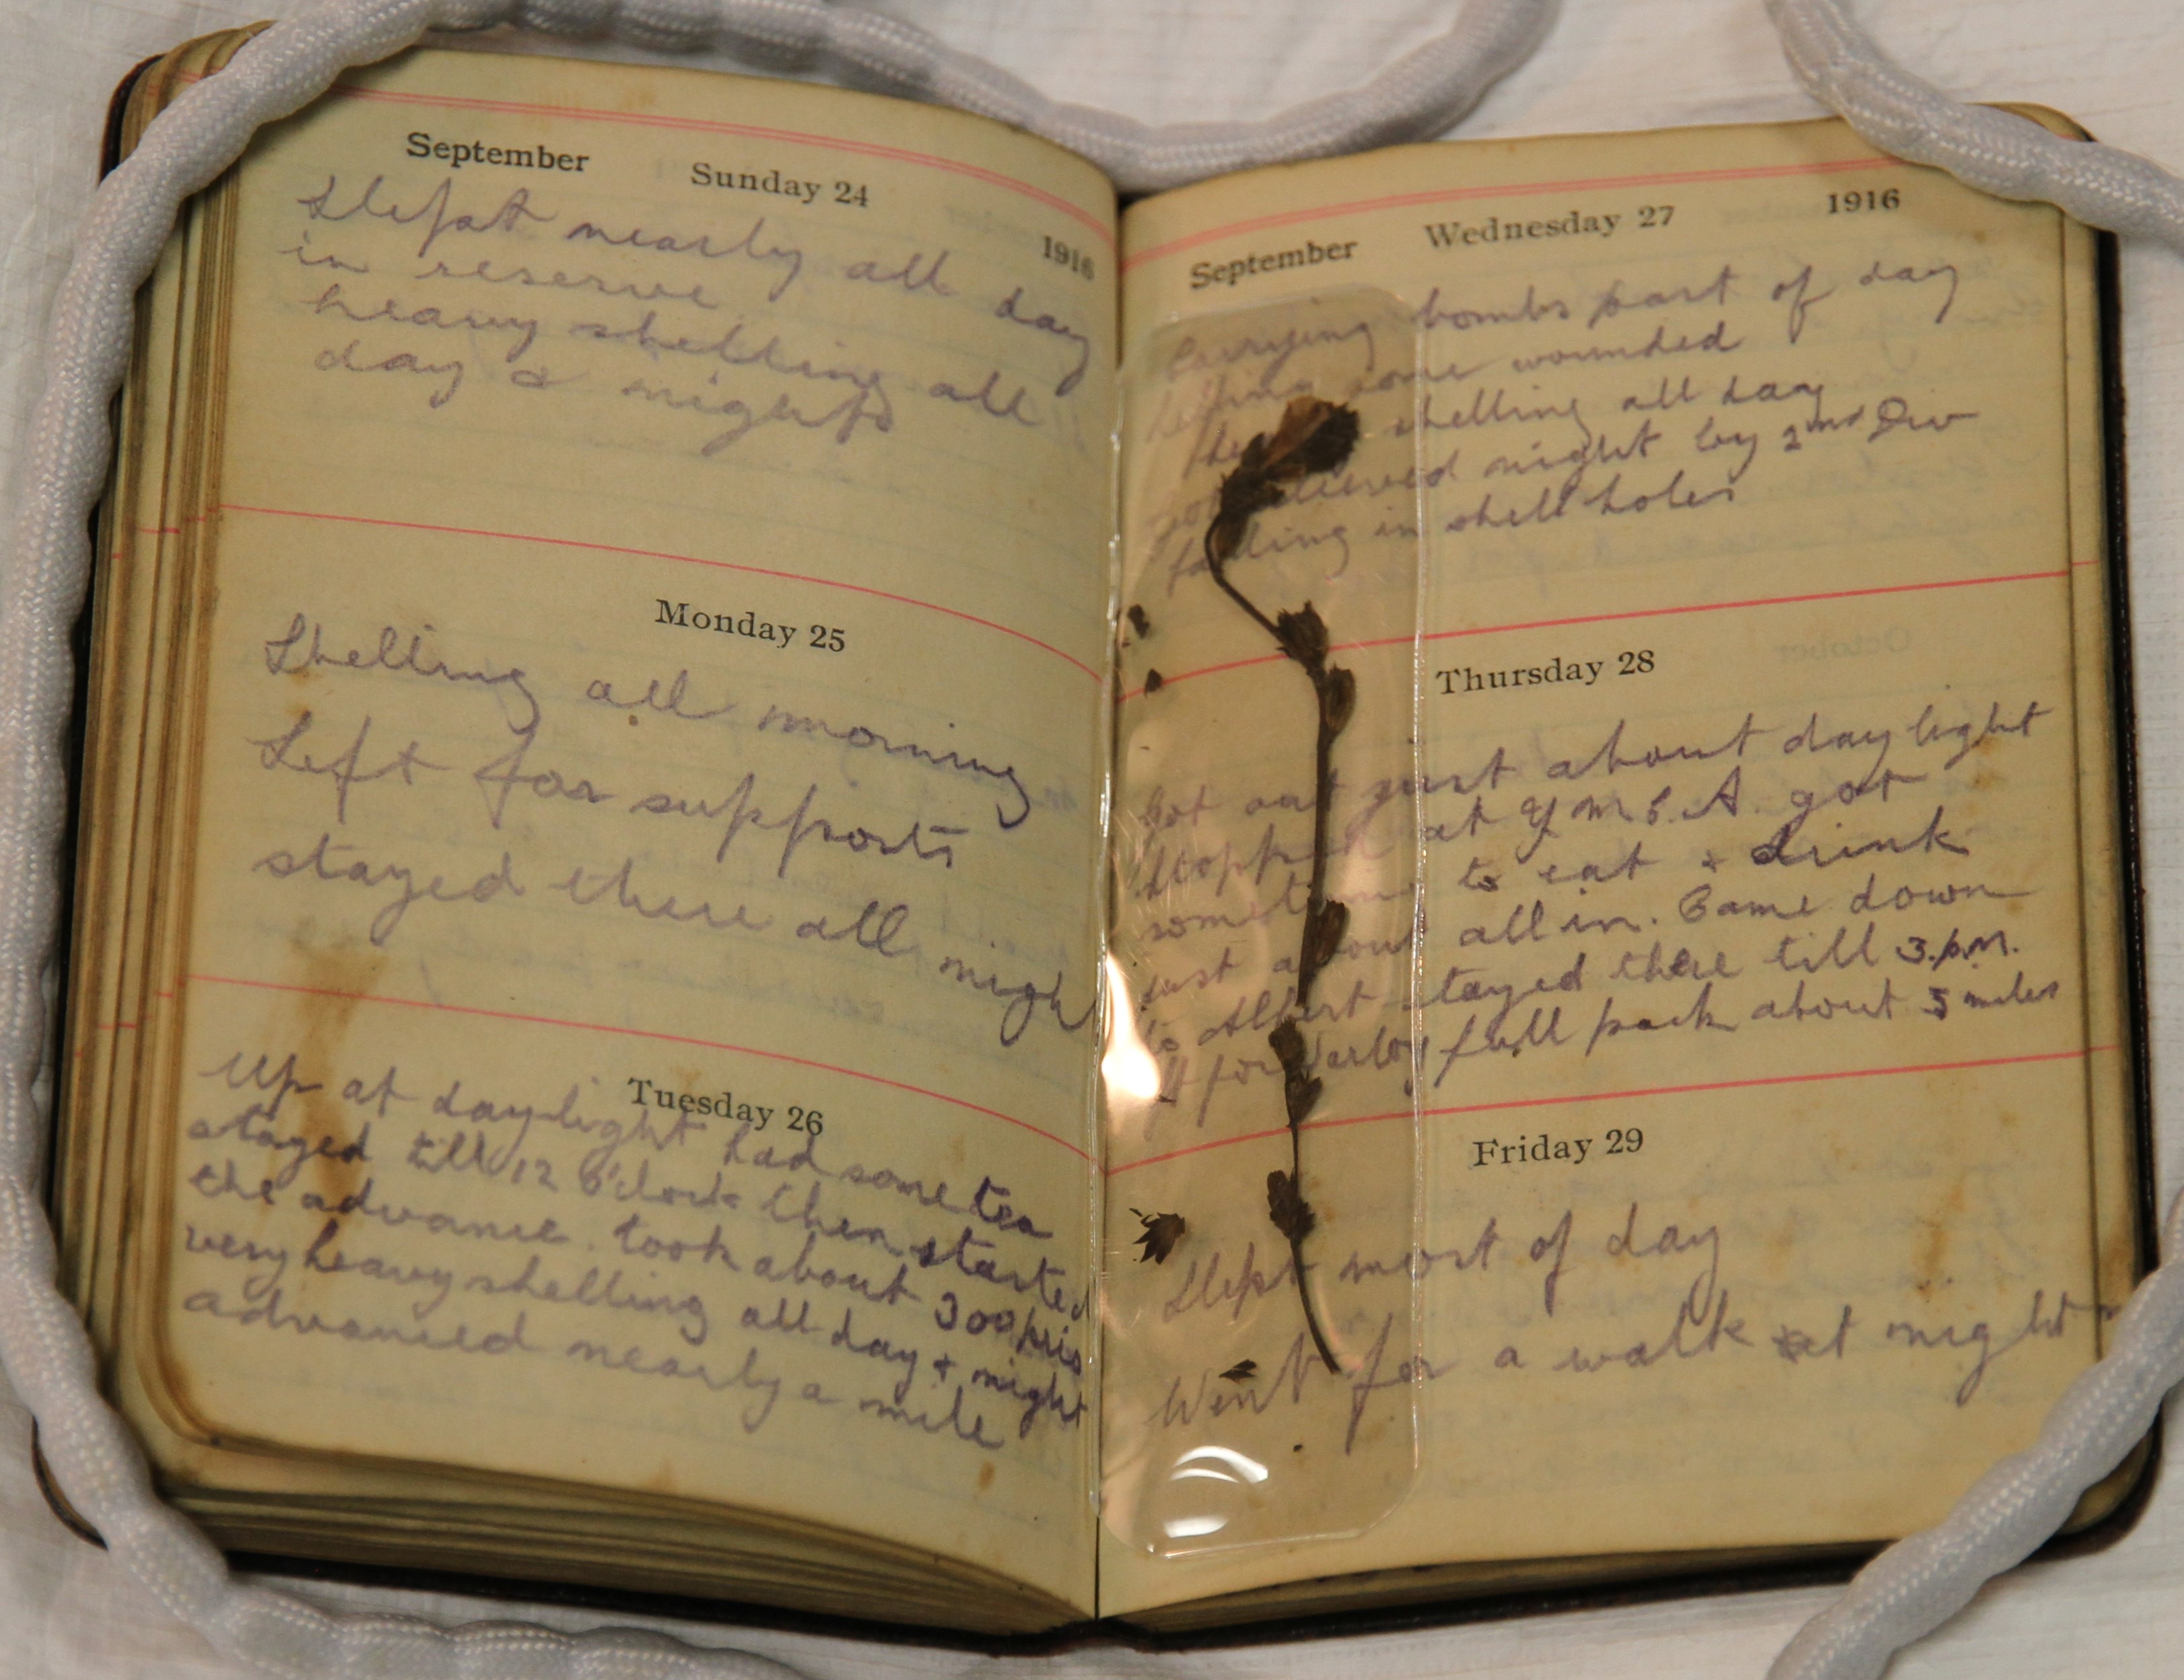 September Sunday 24 1916
Slept nearly all day
in reserve
heavy shelling all
day & night
Monday 25
Shelling all morning
Left for supports
stayed there all nigh
Tuesday 26
Up at daylight had some tea
stayed till 12 o'clock then started
the advance. took about 300 pris
very heavy shelling all day + night
advanced nearly a mile
September Wednesday 27 1916
Carrying bombs part of day
helping some wounded
shelling all day
relieved night by 2nd Div
falling in shell holes
Thursday 28
Got out just about daylight
stopped at Y.M.C.A. got
something to eat + drink
just about all in. Came down
to Albert stayed there till 3.p.m.
for full pack about 5 miles
Friday 29
Slept most of day
Went for a walk at night